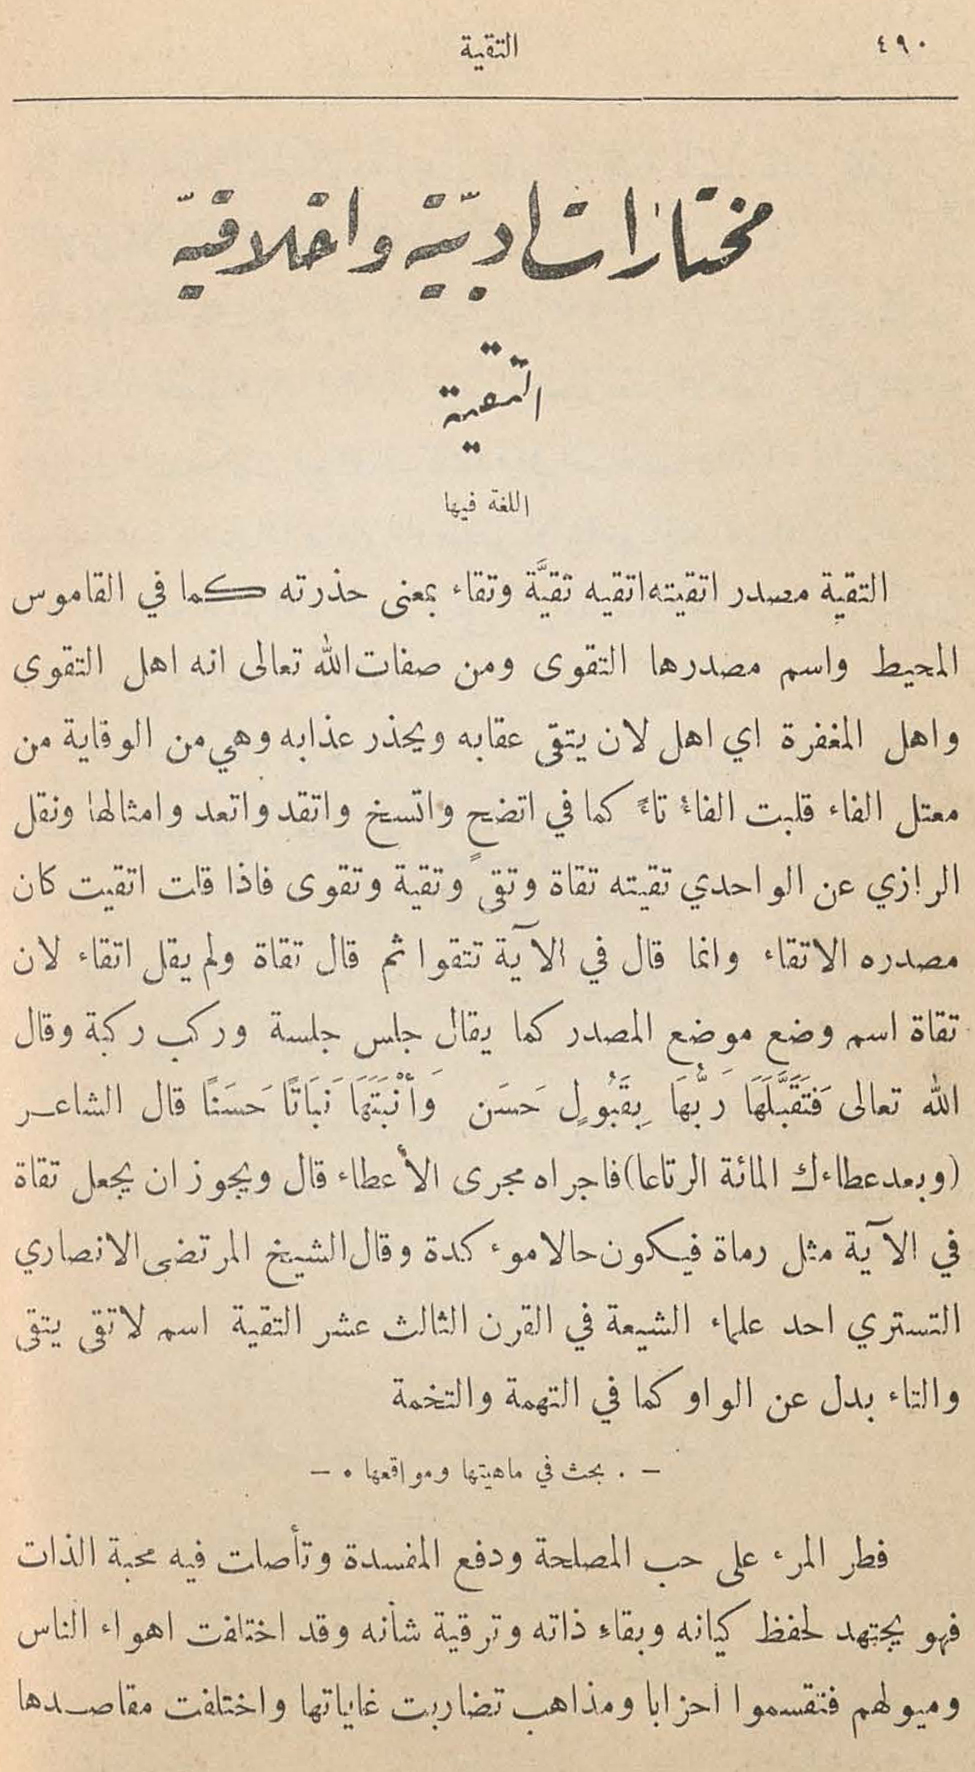 ٤٩٠
التقية
مختارات ادبيّة واخلاقيّة
التقية
اللغة فيها
التقية مصدر اتقيته اتقيه تقيَّة وتقاء بمعنى حذرته كما في القاموس
المحيط واسم مصدرها التقوى ومن صفات الله تعالى انه اهل التقوى
واهل المغفرة اي اهل لان يتقى عقابه ويحذر عذابه وهي من الوقاية من
معتل الفاء قلبت الفاءُ تاءً كما في اتضح واتسخ واتقد واتعد وامثالها ونقل
الرازي عن الواحدي تقيته تقاة وتقىً وتقية وتقوى فاذا قلت اتقيت كان
مصدره الاتقاء وانما قال في الآية تتقوا ثم قال تقاة ولم يقل اتقاء لان
تقاة اسم وضع موضع المصدر كما يقال جلس جلسة وركب ركبة وقال
الله تعالى فَتَقَبَّلَهَا رَبُّهَا بِقَبُولٍ حَسَن وَأَنْبَتَهَا نَبَاتًا حَسَنًا قال الشاعر
(وبعد عطاءك المائة الرتاعا) فاجراه مجرى الأعطاء قال ويجوز ان يجعل تقاة
في الآية مثل رماة فيكون حالا موءكدة وقال الشيخ المرتضى الانصاري
التستري احد علماء الشيعة في القرن الثالث عشر التقية اسم لاتقى يتقى
والتاء بدل عن الواو كما في التهمة والتخمة
— . بحث في ماهيتها ومواقعها . —
فطر المرء على حب المصلحة ودفع المفسدة وتأصلت فيه محبة الذات
فهو يجتهد لحفظ كيانه وبقاءِ ذاته وترقية شأنه وقد اختلفت اهواء الناس
وميولهم فتقسموا احزابا ومذاهب تضاربت غاياتها واختلفت مقاصدها